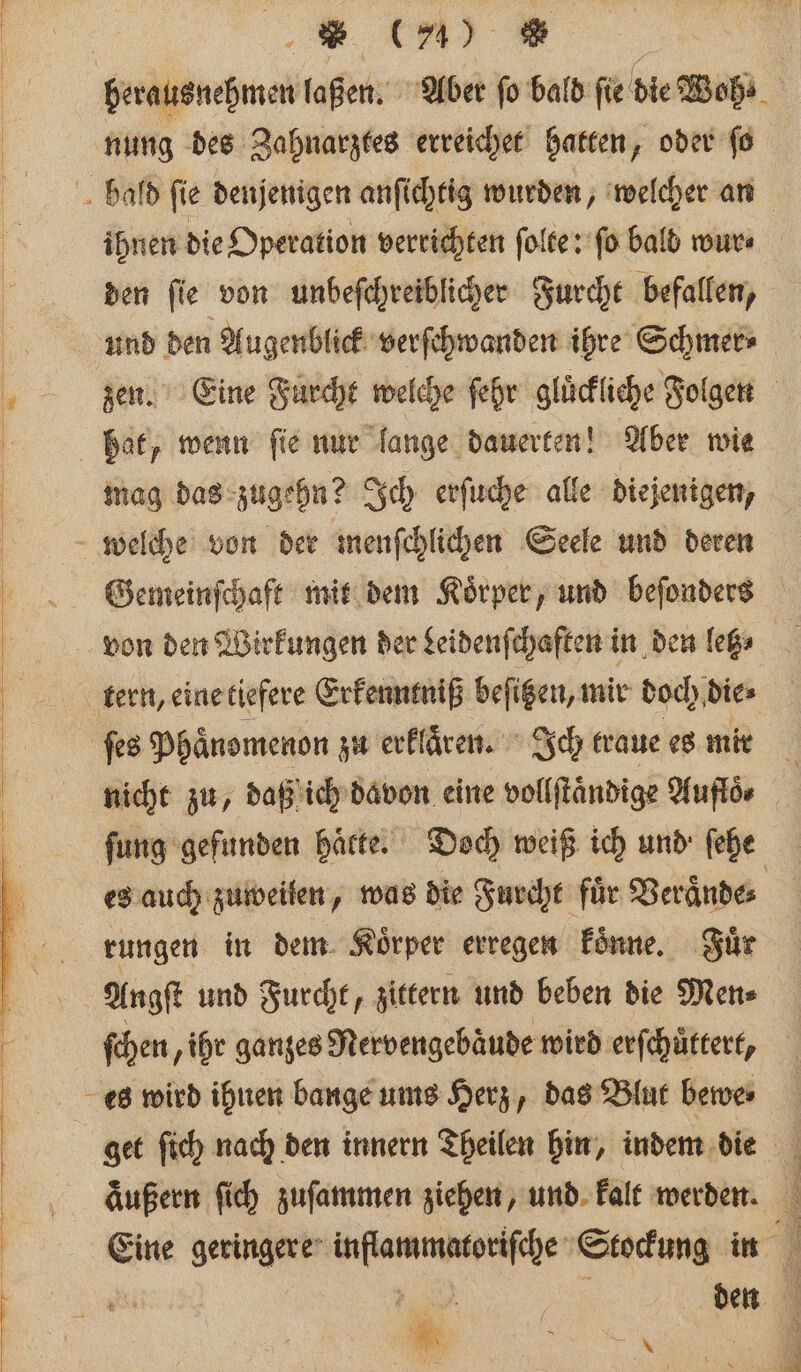 ❉ (74) ❉
herausnehmen laßen. Aber ſo bald ſie die Woh⸗
nung des Zahnarztes erreichet hatten, oder ſo
bald ſie denjenigen anſichtig wurden, welcher an
ihnen die Operation verrichten ſolte: ſo bald wur⸗
den ſie von unbeſchreiblicher Furcht befallen,
und den Augenblick verſchwanden ihre Schmer⸗
zen. Eine Furcht welche ſehr gluͤckliche Folgen
hat, wenn ſie nur lange dauerten! Aber wie
mag das zugehn? Ich erſuche alle diejenigen,
welche von der menſchlichen Seele und deren
Gemeinſchaft mit dem Koͤrper, und beſonders
von den Wirkungen der Leidenſchaften in den letz⸗
tern, eine tiefere Erkenntniß beſitzen, mir doch die⸗
ſes Phaͤnomenon zu erklaͤren. Ich traue es mir
nicht zu, daß ich davon eine vollſtaͤndige Aufloͤ⸗
ſung gefunden haͤtte. Doch weiß ich und ſehe
es auch zuweilen, was die Furcht fuͤr Veraͤnde⸗
rungen in dem Koͤrper erregen koͤnne. Fuͤr
Angſt und Furcht, zittern und beben die Men⸗
ſchen, ihr ganzes Nervengebaͤude wird erſchuͤttert,
es wird ihnen bange ums Herz, das Blut bewe⸗
get ſich nach den innern Theilen hin, indem die
aͤußern ſich zuſammen ziehen, und kalt werden.
Eine geringere inflammatoriſche Stockung in
den